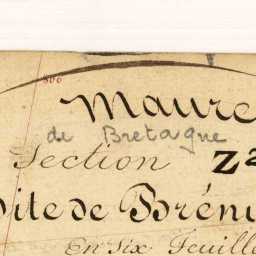 806
Maure
de Bretagne
Section Za
Dite de Bréni
En Six Feuille